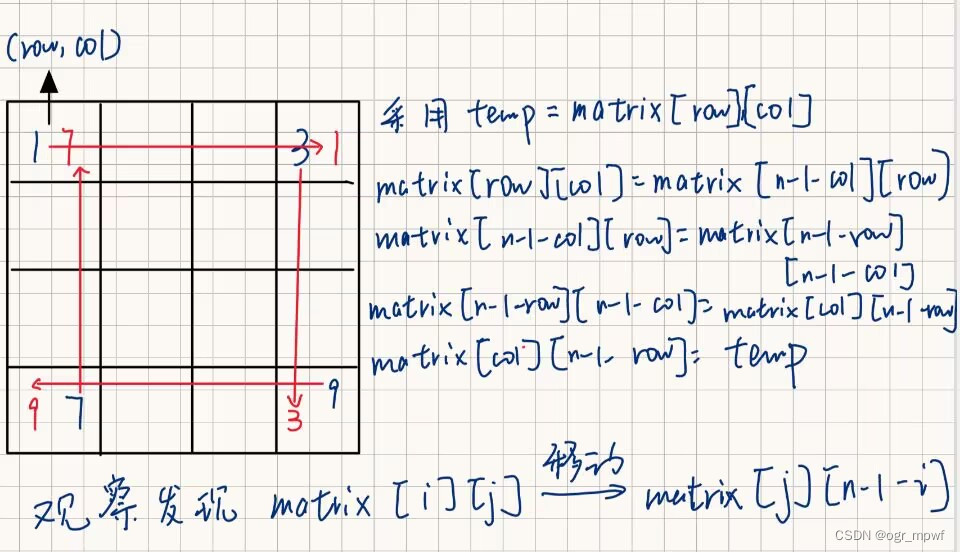 (row, col)
1 7 3 1
采用 temp = matrix[row][col]
matrix[row][col] = matrix [n-1-col][row)
matrix[ n-1-col][row] = matrix[n-1-row]
[n-1-col]
matrix[n-1-row][n-1-col] = matrix[col][n-1-row]
matrix[col][n-1-row] = temp
9
9 7 3
观察发现 matrix [i][j] 移动 matrix[j][n-1-i]
CSDN @ogr_mpwf